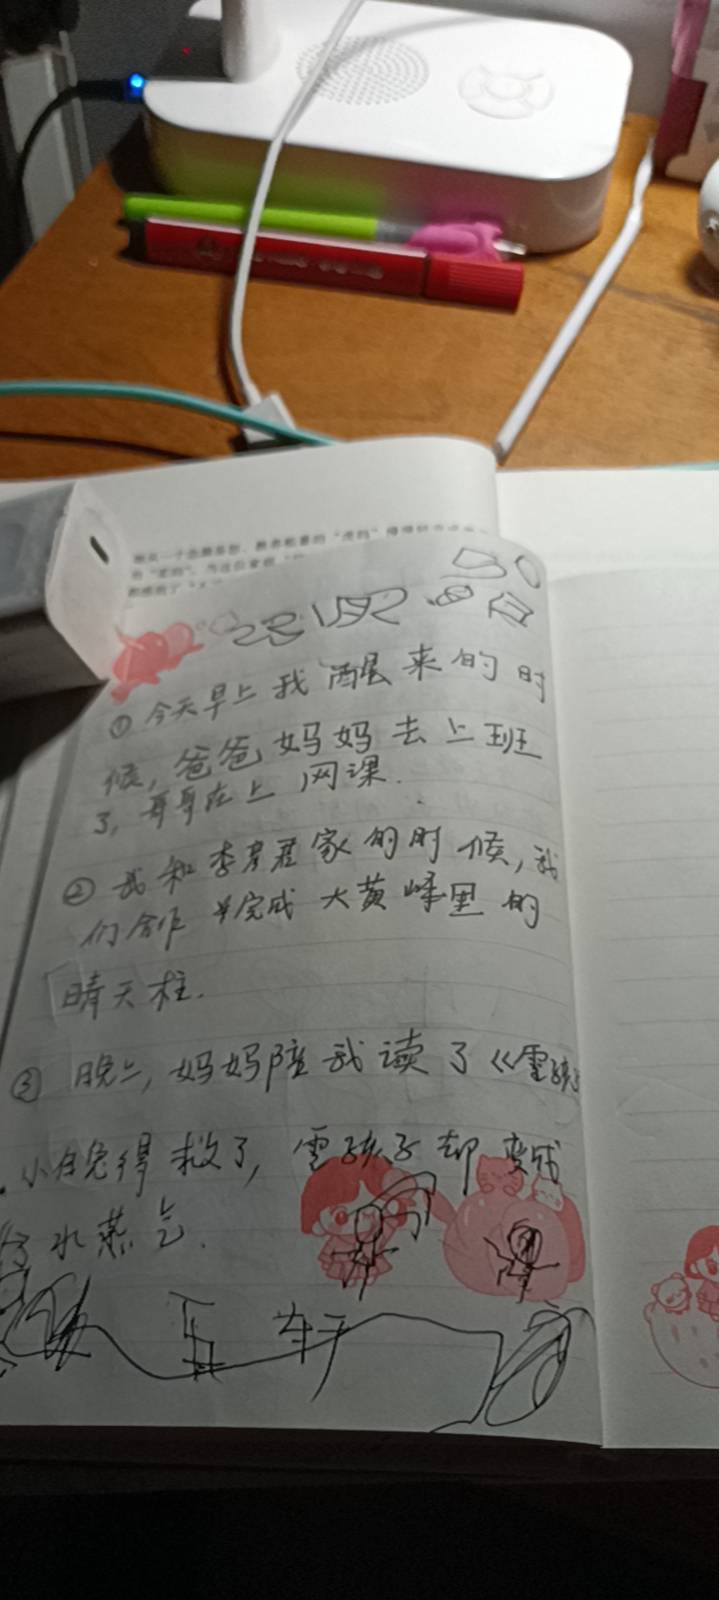 ① 今天早上我醒来的时
候，爸爸妈妈去上班
了，哥哥在上网课.
② 我和李彦君家的时候，我
们合作 完成大黄峰里的
晴天柱.
③ 晚上，妈妈陪我读了《雪孩
小白兔得救了，雪孩子却变成
水蒸气.
轩